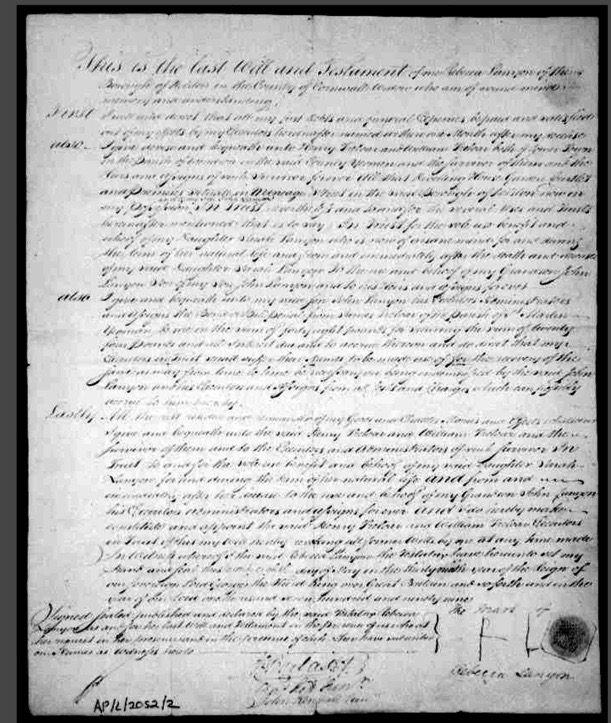 This is the last Will and Testament of me Rebecca Lanyon of the
Borough of Helston in the County of Cornwall Widow who am of sound mind
memory and understanding.
First I will and direct that all my just debts and funeral Expenses be paid and satisfied
out of my effects by my Executors hereinafter named within one Month after my decease
also I give devise and bequeath unto Henry Treloar and William Treloar both of
in the Parish of Wendron in the said County Yeomen and the survivor of them and the
Heirs and assigns of such survivor forever All that Dwelling House Garden
and Premises situate in Meneage Street in the said Borough of Helston now in
my Possession In Trust nevertheless and to and for the several Uses and Trusts
hereinafter mentioned that is to say In Trust for the sole use benefit and
behoof of my Daughter Sarah Lanyon who is now of mind for and during
the term of her natural life and from and immediately after the death and decease
of my said Daughter Sarah Lanyon To the use and behoof of my Grandson John
Lanyon Son of my Son John Lanyon and to his Heirs and assigns forever
also I give and bequeath unto my said Son John Lanyon his Executors Administrators
and assigns the Bond from James Treloar of the Parish of
Yeoman to me in the sum of forty eight pounds for securing the sum of twenty
four pounds and interest due and to accrue thereon and do direct that my
Executors in Trust shall suffer their Names to be made use of for the recovery of the
same from time to time
Lanyon and his Executors and assigns from all Costs and Charges which can
accrue to them thereby
Lastly All the rest residue and remainder of my Goods and Chattels Monies and effects whatsoever
I give and bequeath unto the said Henry Treloar and William Treloar and the
survivor of them and to the Executors and Administrators of such survivor In
Trust to and for the sole use benefit and behoof of my said Daughter Sarah
Lanyon for and during the term of her natural life and from and
immediately after her decease to the use and behoof of my Grandson John Lanyon
his Executors Administrators and assigns forever And I do hereby make
constitute and appoint the said Henry Treloar and William Treloar Executors
in Trust of this my Will hereby revoking all former Wills by me at any time made
In Witness whereof I the said Rebecca Lanyon the Testatrix have hereunto set my
Hand and Seal this day of May in the thirty ninth year of the Reign of
our Sovereign Lord George the Third King over Great Britain and so forth and in the
year of our Lord one thousand seven hundred and ninety nine
Signed sealed published and declared by the said Testatrix Rebecca
Lanyon as and for her last Will and Testament in the presence of us who at
her request in her presence and in the presence of each other have subscribed
our Names as Witnesses hereto
The Mark of
Rebecca Lanyon
John Kendall Junr
AP/L/2052/2